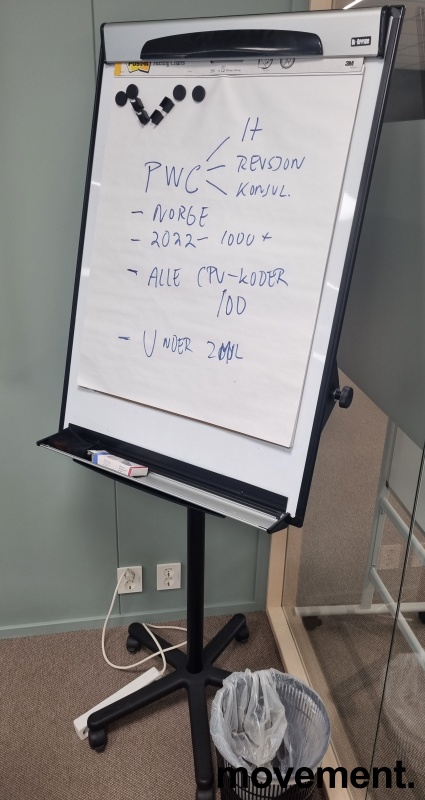 3M
IT
PWC
REVSJON
KONSUL.
- NORGE
- 2022- 1000+
- ALLE CPV-KODER
100
- UNDER 2MIL
movement.